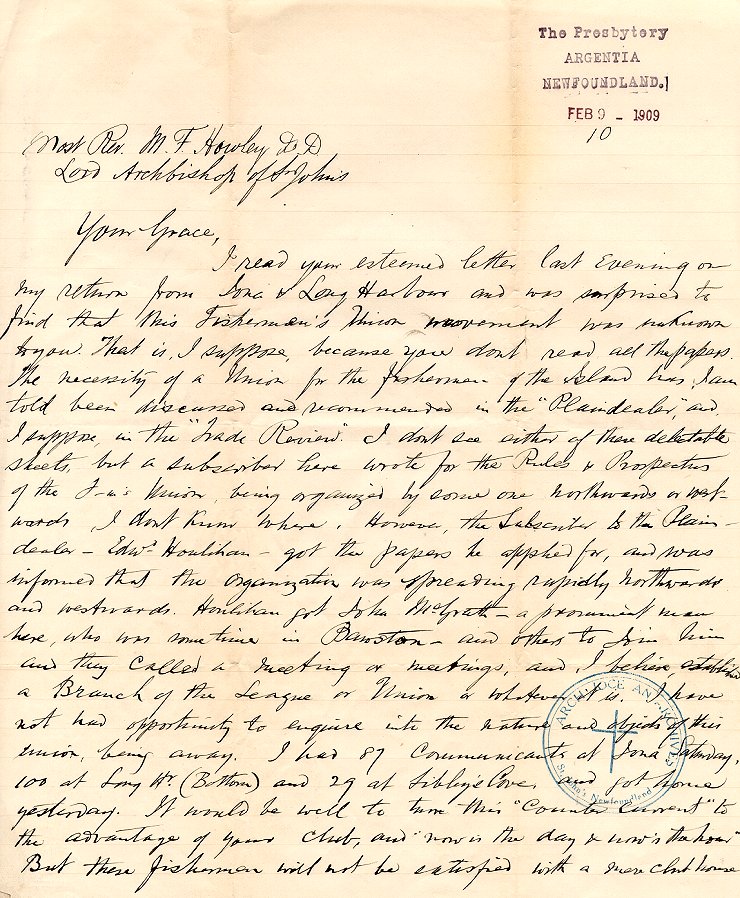 The Presbytery
ARGENTIA
NEWFOUNDLAND.
FEB 9 - 1909
10
Most Rev. M. F. Howley D.D.
Lord Archbishop of St Johns
Your Grace,
I read your esteemed letter last Evening on
my return from Iona & Long Harbour and was surprised to
find that this Fishermen's Union movement was unknown
to you. That is, I suppose, because you dont read all the papers.
The necessity of a Union for the fishermen of the Island has, I am
told been discussed and recommended in the "Plaindealer", and
I suppose, in the "Trade Review". I dont see either of these delectable
sheets, but a subscriber here wrote for the Rules & Prospectus
of the F-n's Union, being organized by some one northwards or west-
wards, I dont know where. However, the Subscriber to the Plain-
dealer - Edwd Houlihan - got the papers he applied for, and was
informed that the organization was spreading rapidly northwards
and westwards. Houlihan got John McGrath - a prominent man
here, who was sometime in Boston - and others to join him
and they called a meeting or meetings, and, I believe established
a Branch of the League or Union or whatever it is. I have
not had opportunity to enquire into the nature and objects of this
union, being away. I had 87 Communicants at Iona Saturday,
100 at Long Hr. (Bottom) and 29 at Sibley's Cove, and got home
yesterday. It would be well to turn this "Counter Current" to
the advantage of your Club, and "now is the day & now's the hour"
But these fishermen will not be satisfied with a mere club house
ARCHDIOCESAN ARCHIVES
St. John's, Newfoundland